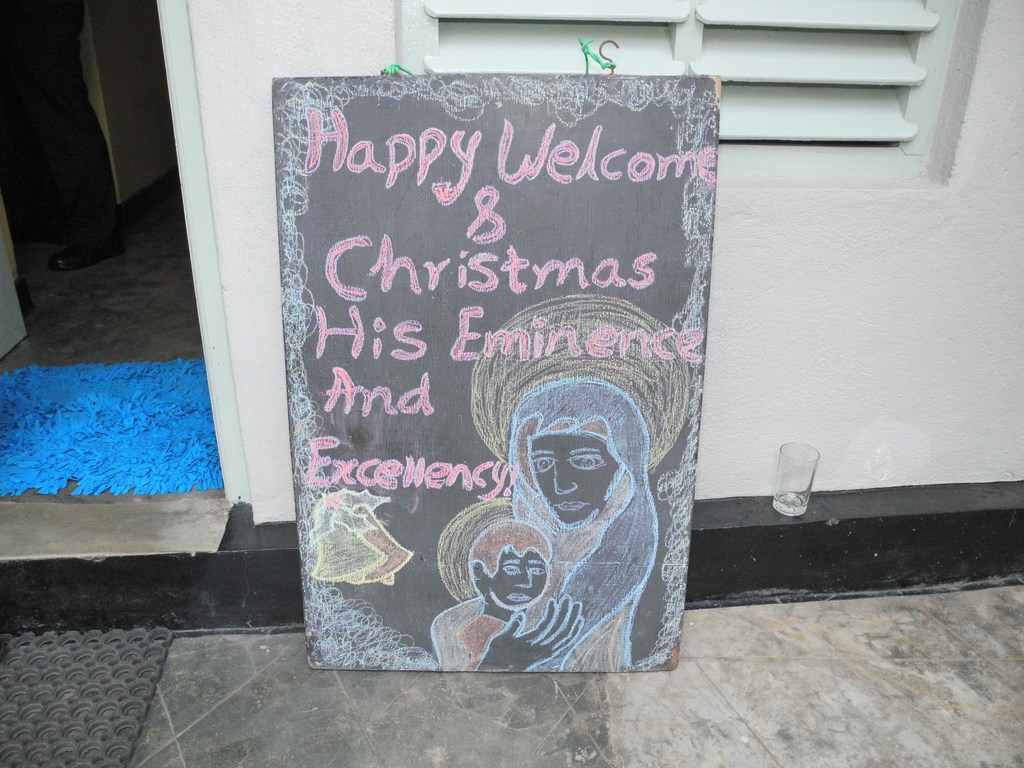 Happy Welcome
&
Christmas
His Eminence
And
Excellency!